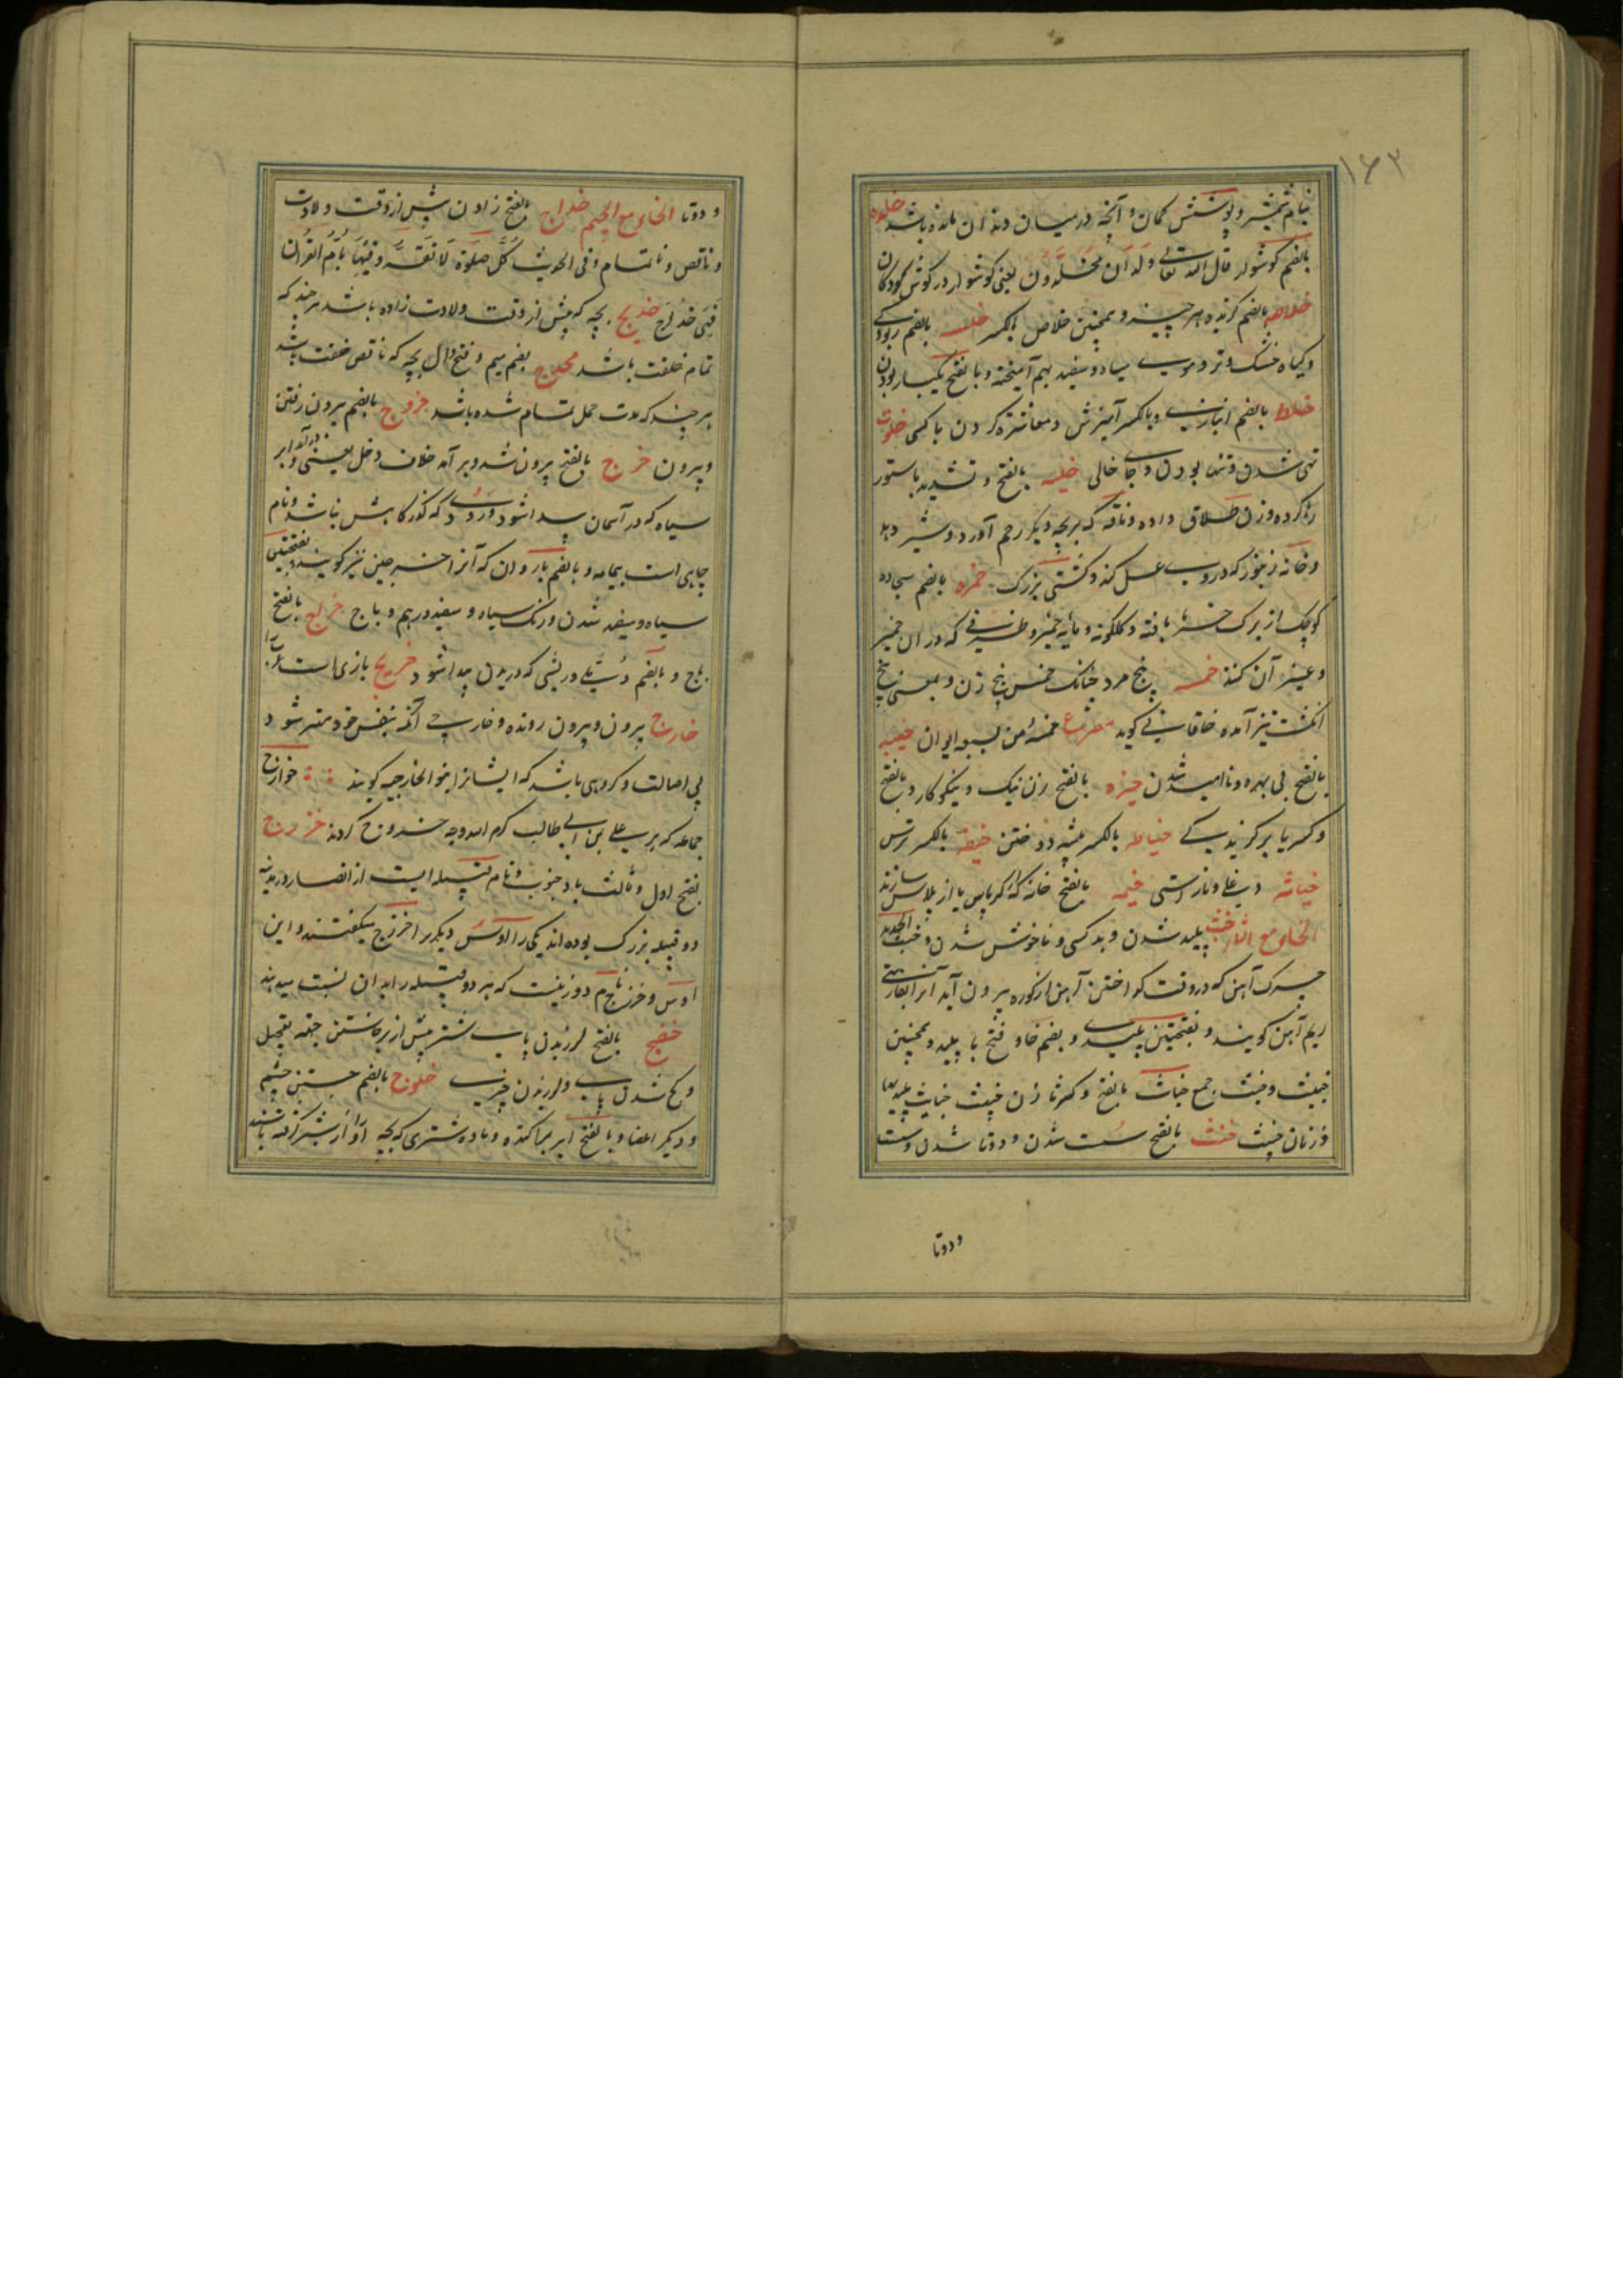 ۱۶۳
نیام شمشیر و پوشش کمان و آنچه در میان دندان مانده باشد خلده
بالضم گوشواره قال الله تعالی ولدان مخلدون یعنی گوشوار در گوش کودکان
خلاصه بالضم گزیده هر چیز و همچنین خلاص بالکسر خلسه بالضم ربودگی
و گیاه خشک و تر و موی سیاه و سفید بهم آمیخته و بالفتح یکبار ربودن
خلطه بالضم انبازی و بالکسر آمیزش و معاشرت کردن با کسی خلوت
تهی شدن و تنها بودن و جای خالی خلیه بالفتح و تشدید یا ستور
رها کرده و زن طلاق داده و ناقه که بر بچه دیگر رحم آورد و شیر دهد
و خانه زنبور که در وی عسل کند و کشتی بزرگ خمره بالضم سجاده
کوچک از برگ خرما بافته و گلگونه و مایه خمیر و ظرفی که در آن خمیر
و غیر آن کنند خمسه پنج مرد چنانکه خمس پنج زن و بمعنی پنج
انگشت نیز آمده خاقانی گوید مصرع خمسه من سبعه الوان خیبه
بالفتح بی بهره و ناامید شدن خیره بالفتح زن نیک و نیکوکار و بالفتح
و کسر یا برگزیدگی خیاطه بالکسر پیشه دوختن خیفه بالکسر ترس
خیانه دغلی و ناراستی خیمه بالفتح خانه که از کرباس یا از پلاس سازند
الخاء مع الثاء خبث پلید شدن و بدکسی و ناخوش شدن و خبث الحدید
چرک آهن که در وقت گداختن آهن از کوره بیرون آید آنرا بفارسی
ریم آهن گویند و بفتحتین پلیدی و بضم خا و فتح با پلید و همچنین
خبیث و خبث جمع خباث بالفتح و کسر ثا زن خبیث خبایث پلیدیها
و زنان خبیث خنث بالفتح سست شدن و دوتا شدن و سست
و دوتا
و دوتا الخاء مع الجیم خداج بالفتح زادن پیش از وقت ولادت
و ناقص و ناتمام و فی الحدیث کل صلوة لا تقرء فیها بام القران
فهی خداج خدیج بچه که پیش از وقت ولادت زاده باشد هر چند که
تمام خلقت باشد مخدج بضم میم و فتح دال بچه که ناقص خلقت باشد
هر چند که مدت حمل تمام شده باشد خروج بالضم بیرون رفتن
و بیرون خرج بالفتح بیرون شد و برآمد خلاف دخل یعنی درآمد و ابر
سیاه که در آسمان پیدا شود و دردی که کنارهایش نباشد و نام
چاهی است بیمامه و بالضم باردان که آنرا خرجین نیز گویند و بفتحتین
سیاه و سفید شدن و رنگ سیاه و سفید درهم و باج خراج بالفتح
باج و بالضم دنبلی و ریشی که در بدن پیدا شود خریج بازی است عرب را
خارج بیرون و بیرون رونده و خارجی آنکه بنفس خود مهتر شود
بی اصالت و گروهی باشند که ایشانرا بنو الخارجیه گویند خوارج
جماعه که بر علی بن ابی طالب کرم الله وجهه خروج کردند خزرج
بفتح اول و ثالث باد جنوب و نام قبیله ایست از انصار و در مدینه
دو قبیله بزرگ بوده اند یکی را اوس و دیگر را خزرج میگفتند و این
اوس و خزرج نام دو زنیست که هر دو قبیله را بدان نسبت میدهند
خفج بالفتح لرزیدن پای شتر پیش از برخاستن جهه تعجیل
و کج شدن پای و لرزیدن چیزی خلوج بالضم جستن چشم
و دیگر اعضا و بالفتح ابر پراکنده و ماده شتری که بچه او را از شیر گرفته باشند